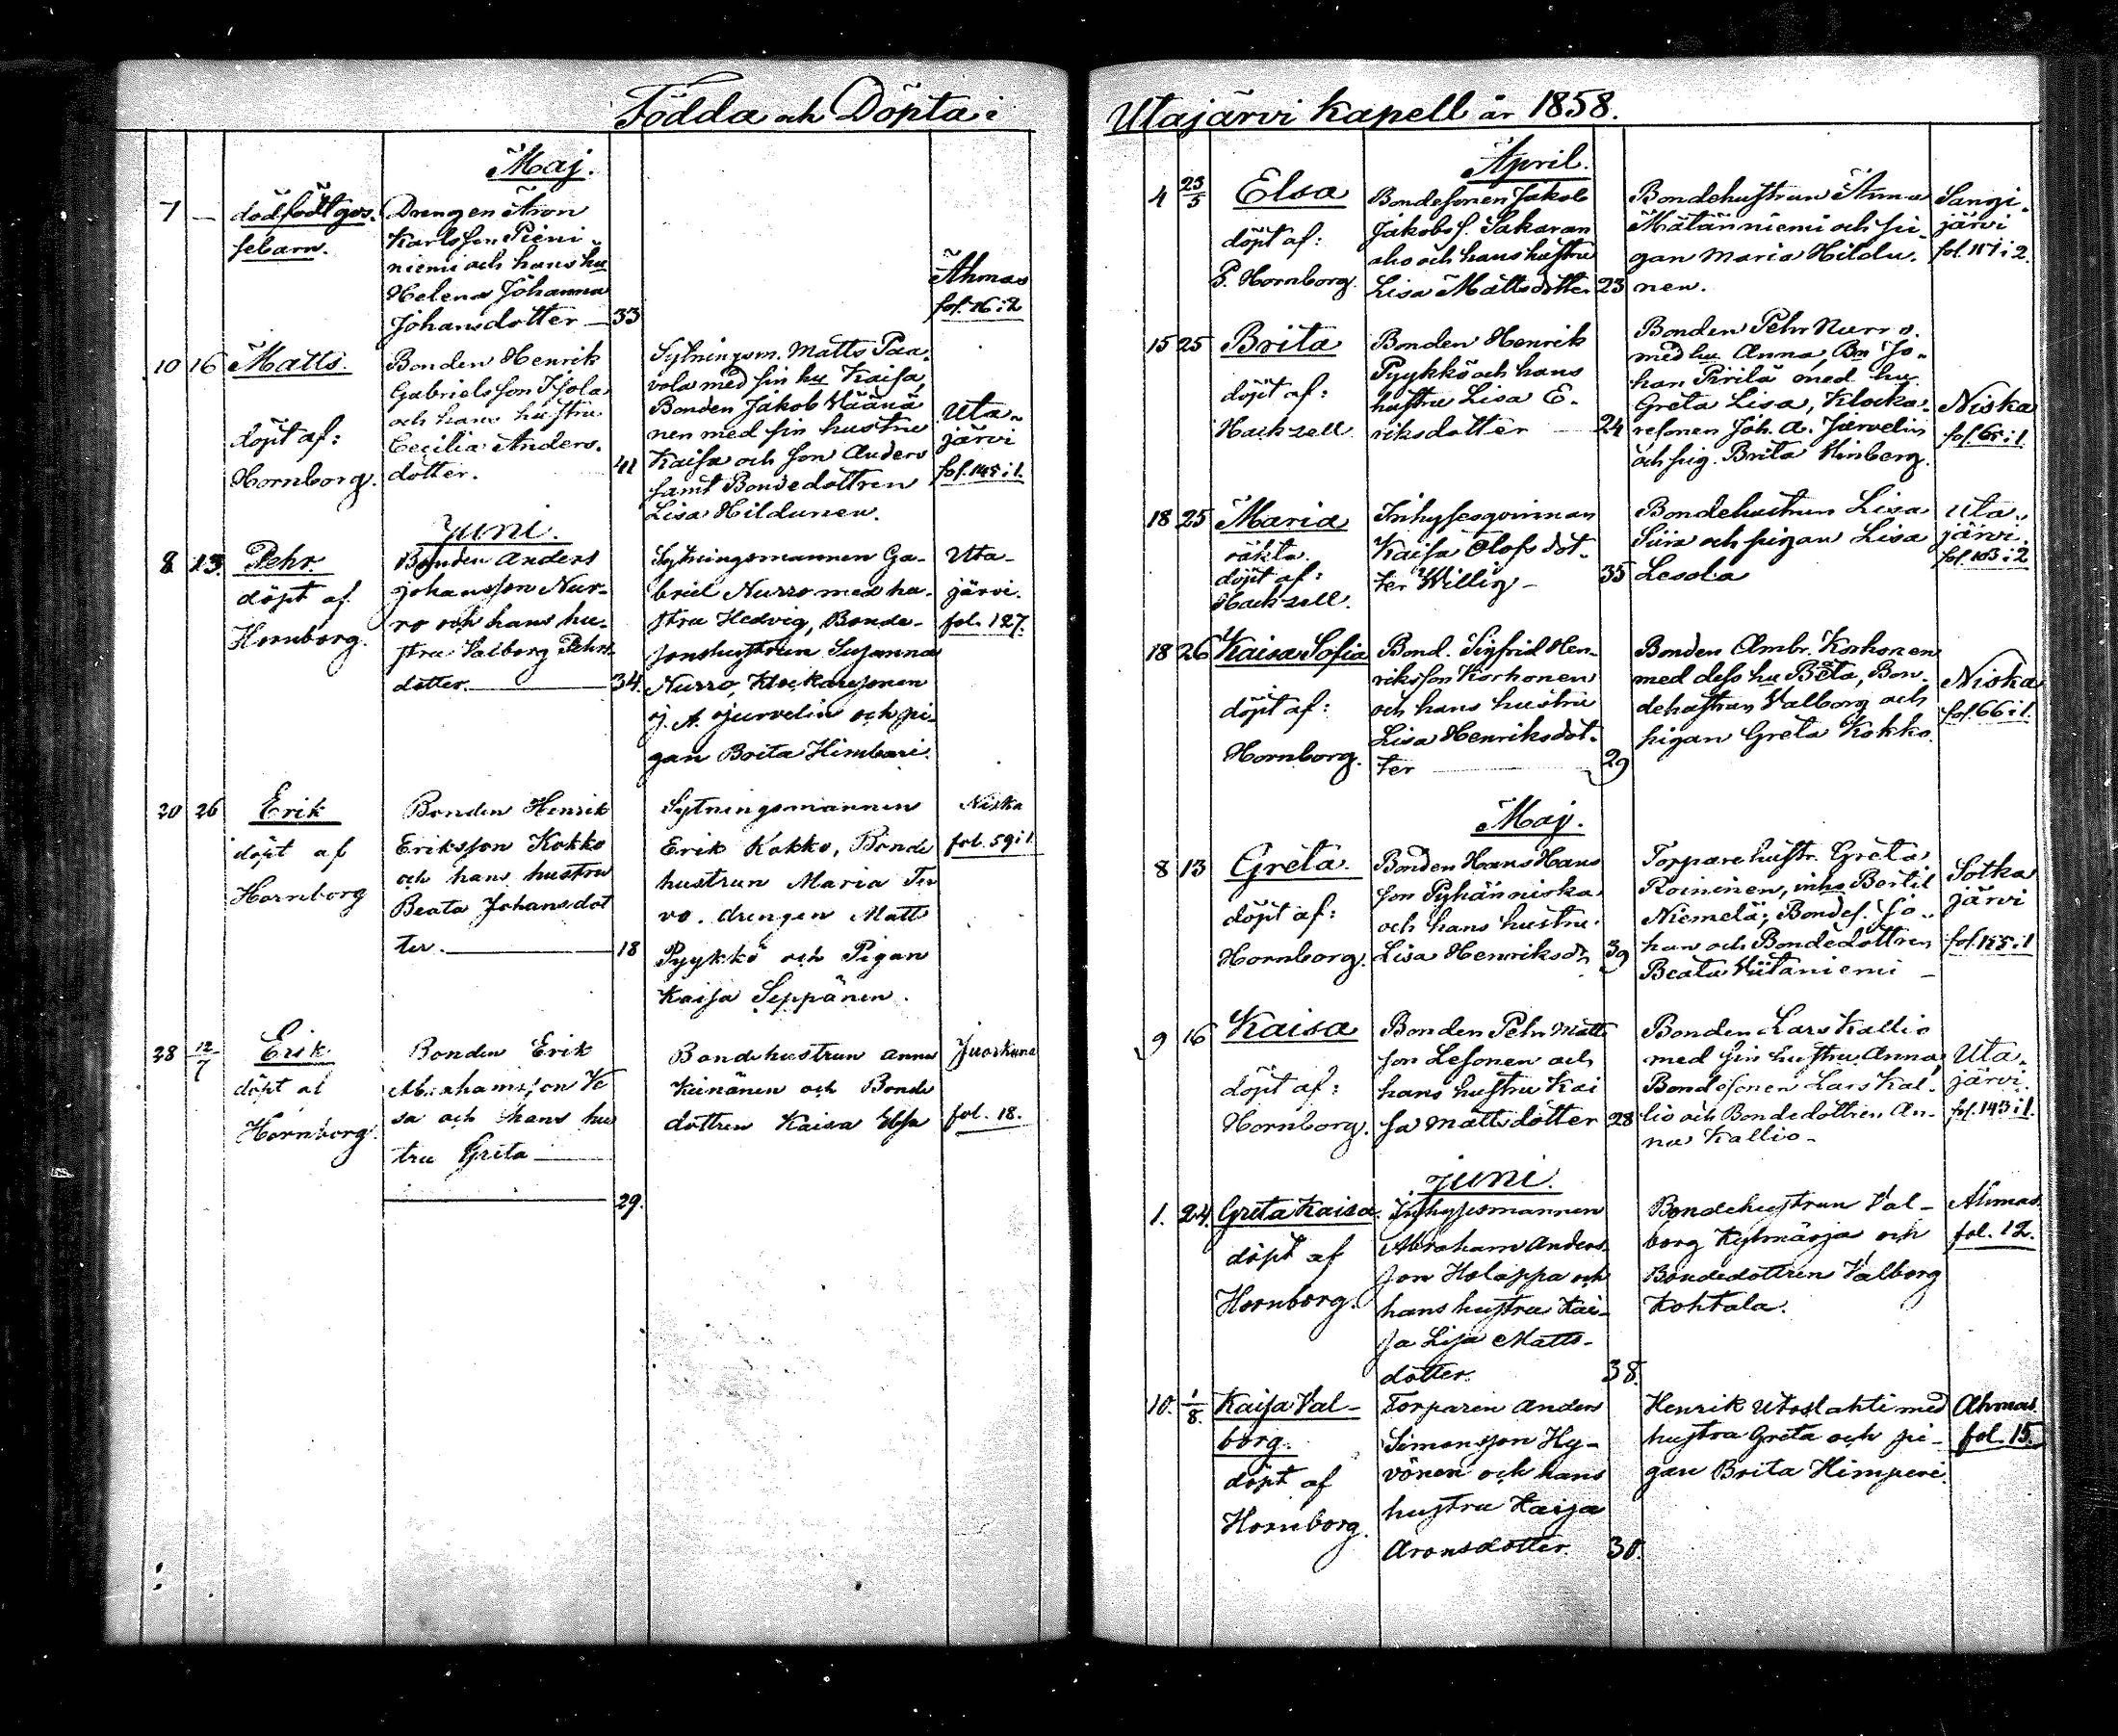 Födda och Döpta i
Maj.
7 — dödfödt gos-
sebarn.
Drengen Aron
Karlsson Pieni-
niemi och hans hu
Helena Johanna
Johansdotter — 33
Ahmas
fol. 16 i 2
10 16 Matts.
döpt af:
Hornborg.
Bonden Henrik
Gabrielsson Isola
och hans hustru
Cecilia Anders-
dotter. 41
Sytningsm. Matts Paa-
vola med sin hu Kaisa,
Bonden Jakob Väänä
nen med sin hustru
Kaisa och son Anders
samt Bondedottren
Lisa Hildunen.
Uta-
järvi
fol. 145 i 1.
Juni.
8 13. Pehr.
döpt af
Hornborg.
Bonden Anders
Johansson Nur-
ro och hans hu-
stru Valborg Pehrs-
dotter. — 34.
Sytningsmannen Ga-
briel Nurro med hu-
stru Hedvig, Bonde-
sonshustrun Susanna
Nurro, Klockaresonen
J. A. Jurvelin och pi-
gan Brita Himbari.
Uta-
järvi.
fol. 127.
20 26 Erik
döpt af
Hornborg
Bonden Henrik
Eriksson Kokko
och hans hustru
Beata Johansdot
ter. — 18
Sytningsmannen
Erik Kokko, Bonde
hustrun Maria Ter
vo. drengen Matts
Pyykkö och Pigan
Kaisa Seppänen.
Niska
fol. 59 i 1
28 12/7 Erik
döpt af
Hornborg.
Bonden Erik
Abrahamsson Ke
sa och hans hus
tru Greta —
— 29.
Bondehustrun Anna
Keinänen och Bonde
dottren Kaisa
Juorkuna
fol. 18.
Utajärvi Kapell år 1858.
April.
4 23/5 Elsa
döpt af:
P. Hornborg.
Bondesonen Jakob
Jakobss. Sakaran
aho och hans hustru
Lisa Mattsdotter 23
Bondehustrun Anna
Mätänniemi och pi-
gan Maria Hildu-
nen.
Sangi-
järvi
fol. 157 i 2.
15 25 Brita
döpt af:
Hackzell
Bonden Henrik
Pyykkö och hans
hustru Lisa E-
riksdotter — 24
Bonden Pehr Nurro
med hu Anna, Bn Jo-
han Pirilä med hu
Greta Lisa, Klocka-
resonen Joh. A. Jurvelin
och pig. Brita Himberg.
Niska
fol. 65 i 1.
18 25 Maria
oäkta.
döpt af:
Hackzell.
Inhysesqvinnan
Kaisa Olofsdot-
ter Willig — 35
Bondehustrun Lisa
Suia och pigan Lisa
Lesola
Uta-
järvi.
fol. 103 i 2
18 26 Kaisa Sofia
döpt af:
Hornborg.
Bond. Sigfrid Hen-
riksson Korhonen
och hans hustru
Lisa Henriksdot-
ter — 29
Bonden Ambr. Korhonen
med dess hu Beta, Bon-
dehustrun Valborg och
pigan Greta Kokko.
Niska
fol. 66 i 1.
Maj.
8 13 Greta.
döpt af:
Hornborg.
Bonden Hans Hans
son Pyhänniska
och hans hustru
Lisa Henriksdr 39
Torparehustr. Greta
Roininen, inhs Bertil
Niemelä, Bondes. Jo-
han och Bondedottren
Beata Viitaniemi —
Sotka
järvi
fol. 155 i 1
9 16 Kaisa
döpt af:
Hornborg.
Bonden Pehr Matts
son Lesonen och
hans hustru Kai
sa Mattsdotter 28
Bonden Lars Kallio
med sin hustru Anna,
Bondesonen Lars Kal-
lio och Bondedottren An-
na Kallio —
Uta-
järvi.
fol. 143 i 1.
Juni.
1. 24. Greta Kaisa.
döpt af
Hornborg.
Inhysesmannen
Abraham Anders-
son Holappa och
hans hustru Kai-
sa Lisa Matts-
dotter. 38.
Bondehustrun Val-
borg Kylmärja och
Bondedottren Valborg
Kohtala.
Ahmas.
fol. 12.
10. 1/8. Kaisa Val-
borg.
döpt af
Hornborg.
Torparen Anders
Simonsson Hy-
vönen och hans
hustru Kaisa
Aronsdotter. 30.
Henrik Utoslahti med
hustru Greta och pi-
gan Brita Himperi.
Ahmas.
fol. 15.